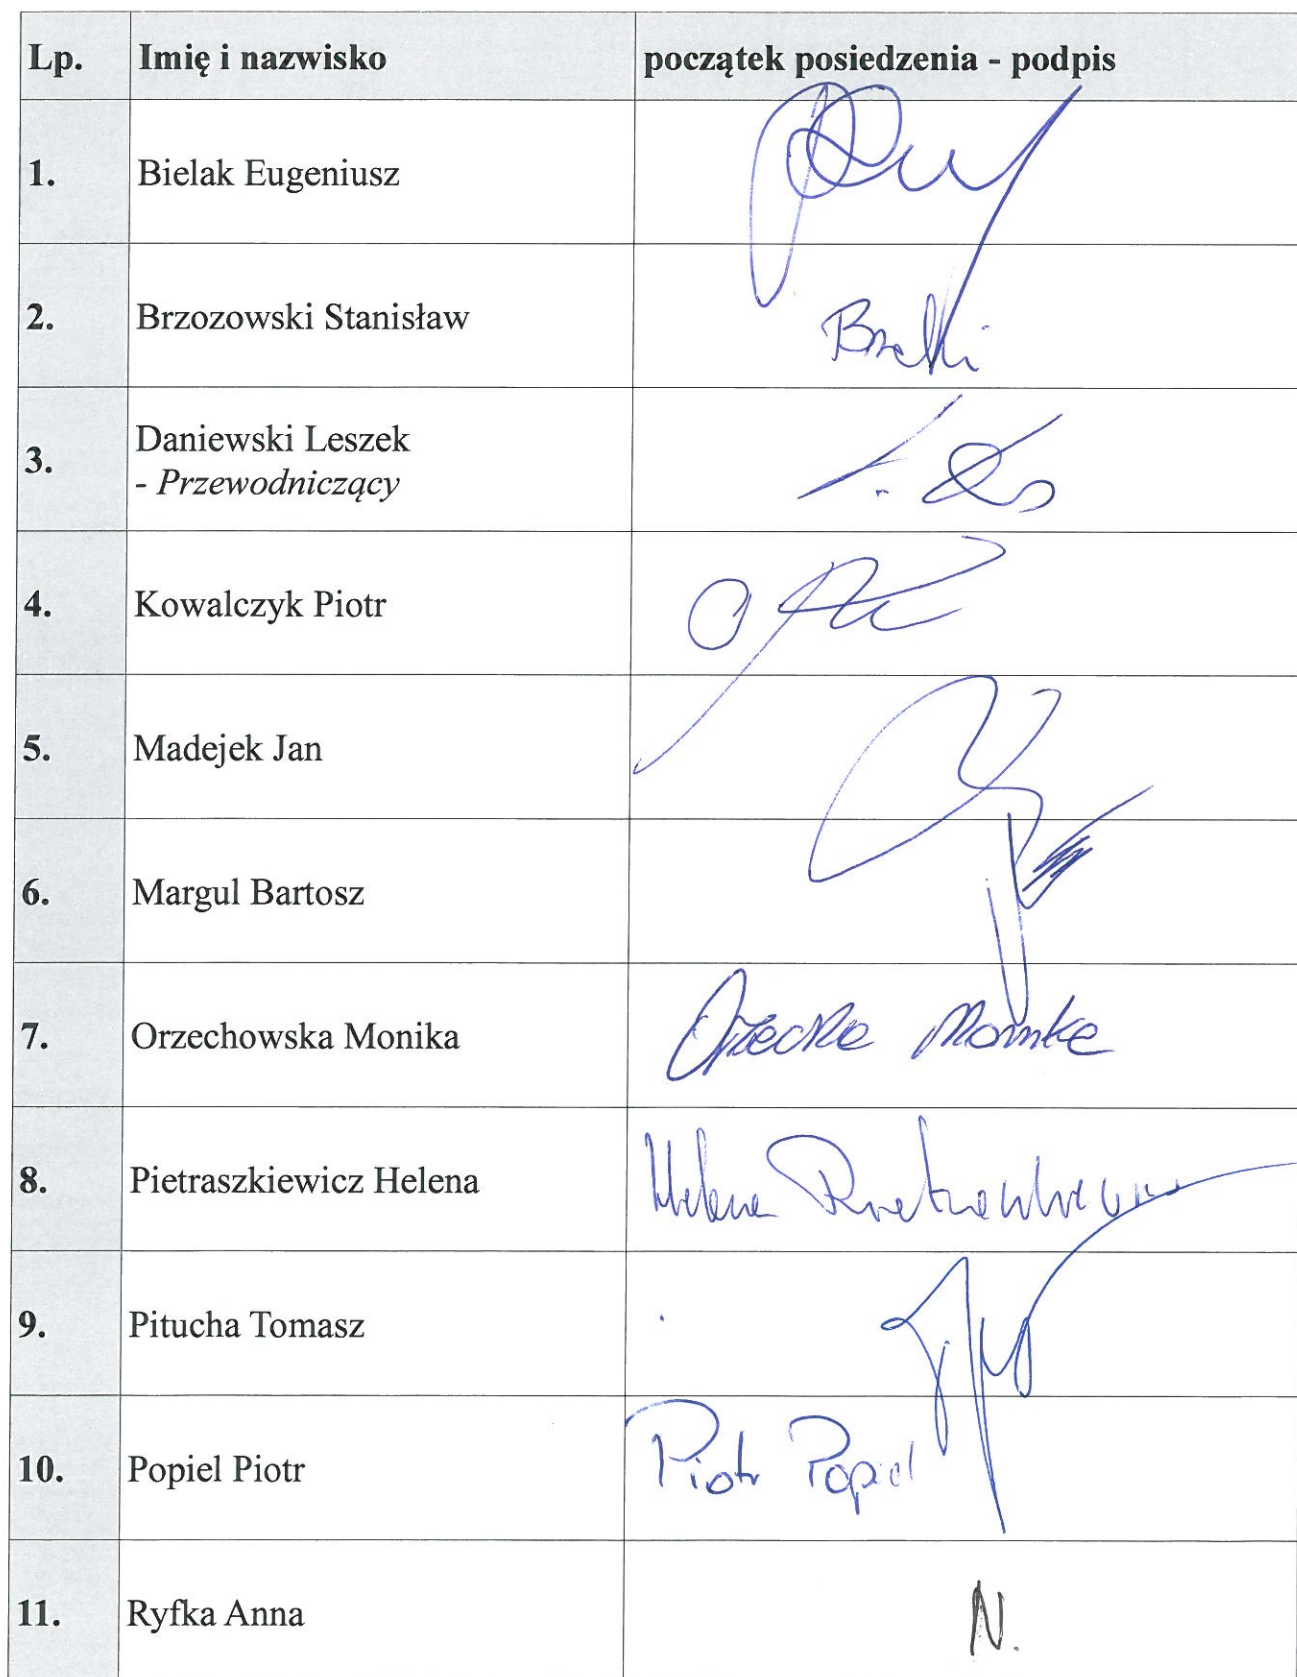 Lp. Imię i nazwisko początek posiedzenia - podpis
1. Bielak Eugeniusz
2. Brzozowski Stanisław
3. Daniewski Leszek
- Przewodniczący
4. Kowalczyk Piotr
5. Madejek Jan
6. Margul Bartosz
7. Orzechowska Monika
8. Pietraszkiewicz Helena Helena
9. Pitucha Tomasz
10. Popiel Piotr Piotr Popiel
11. Ryfka Anna N.